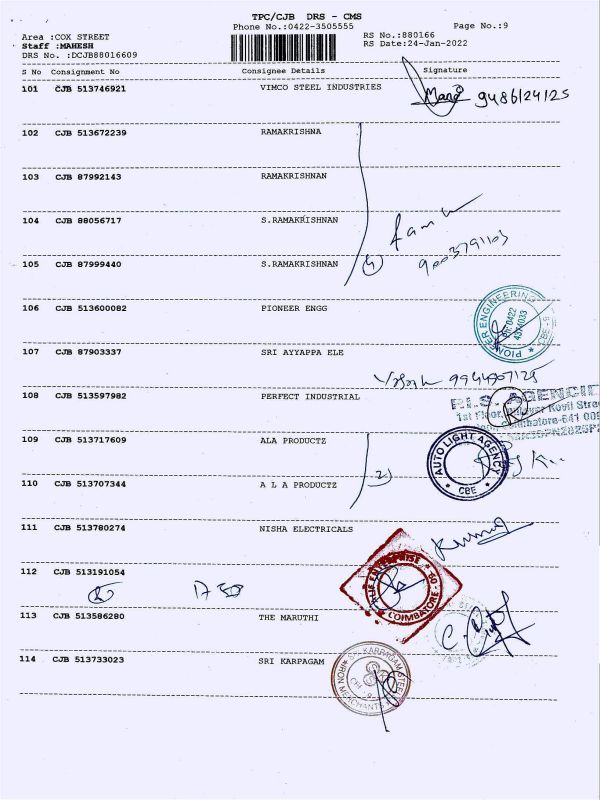 TPC/CJB DRS - CMS
Phone No.:0422-3505555
Page No.:9
Area :COX STREET
RS No.:880166
Staff :MAHESH
RS Date:24-Jan-2022
DRS No. :DCJB88016609
S No Consignment No Consignee Details Signature
101 CJB 513746921 VIMCO STEEL INDUSTRIES
9486124125
102 CJB 513672239 RAMAKRISHNA
103 CJB 87992143 RAMAKRISHNAN
104 CJB 88056717 S.RAMAKRISHNAN
105 CJB 87999440 S.RAMAKRISHNAN
106 CJB 513600082 PIONEER ENGG
PIONEER ENGINEERING
107 CJB 87903337 SRI AYYAPPA ELE
108 CJB 513597982 PERFECT INDUSTRIAL
109 CJB 513717609 ALA PRODUCTZ
AUTO LIGHT AGENCY
CBE
110 CJB 513707344 A L A PRODUCTZ
2
111 CJB 513780274 NISHA ELECTRICALS
112 CJB 513191054
COIMBATORE
113 CJB 513586280 THE MARUTHI
114 CJB 513733023 SRI KARPAGAM
IRON MERCHANTS